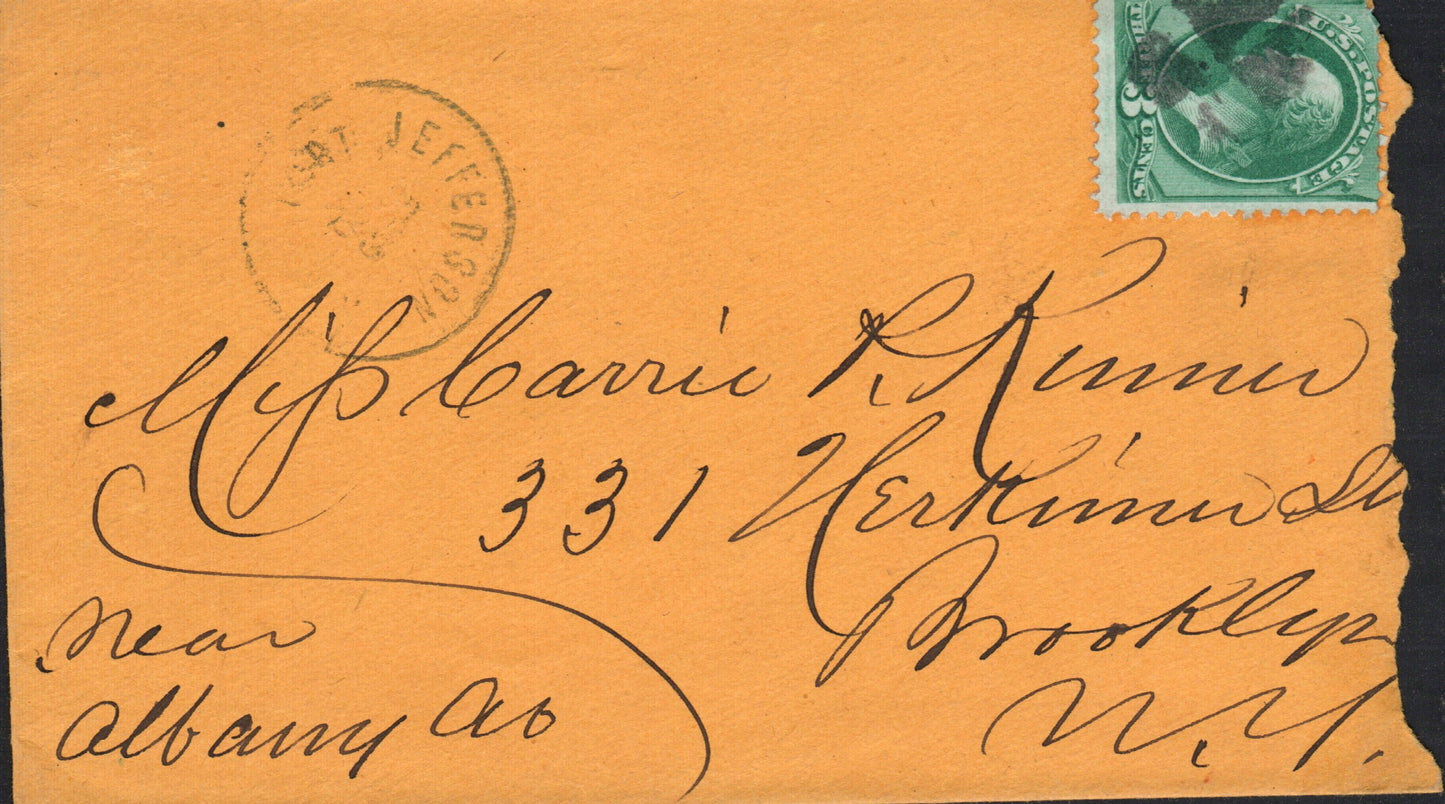 U.S. POSTAGE
THREE 3 CENTS
PORT JEFFERSON
Miss Carrie R. Kinner
331 Herkimer St
Brooklyn
N.Y.
near
Albany Av